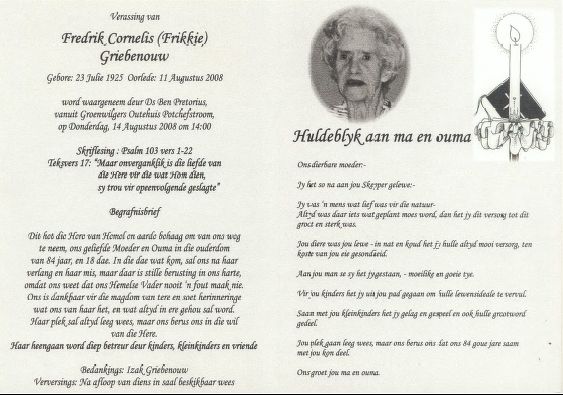 Verassing van
Fedrik Cornelis (Frikkie)
Griebenouw
Gebore: 23 Julie 1925 Oorlede: 11 Augustus 2008
word waargeneem deur Ds Ben Pretorius,
vanuit Groenwilgers Ouetehuis Potchefstroom,
op Donderdag, 14 Augustus 2008 om 14:00
Skriflesing : Psalm 103 vers 1-22
Teksvers 17: "Maar onverganklik is die liefde van
die Here vir die wat Hom dien,
sy trou vir opeenvolgende geslagte"
Begrafnisbrief
Dit hot die Here van Hemel en aarde behaag om van ons weg
te neem, ons geliefde Moeder en Ouma in die ouderdom
van 84 jaar, en 18 dae. In die dae wat kom, sal ons na haar
verlang en haar mis, maar daar is stille berusting in ons harte,
omdat ons weet dat ons Hemelse Vader nooit 'n fout maak nie.
Ons is dankbaar vir die magdom van tere en soet herinneringe
wat ons van haar het, en wat altyd in ere gehou sal word.
Haar plek sal altyd leeg wees, maar ons berus ons in die wil
van die Here.
Haar heengaan word diep betreur deur kinders, kleinkinders en vriende
Bedankings: Izak Griebenouw
Verversings: Na afloop van diens in saal beskikbaar wees
Huldeblyk aan ma en ouma
Ons dierbare moeder:-
Jy het so na aan jou Skepper gelewe:-
Jy was 'n mens wat lief was vir die natuur-
Altyd was daar iets wat geplant moes word, dan het jy dit versorg tot dit
groot en sterk was.
Jou diere was jou lewe - in nat en koud het jy hulle altyd mooi versorg, ten
koste van jou eie gesondheid.
Aan jou man se sy het jy gestaan, - moeilike en goeie tye.
Vir jou kinders het jy uit jou pad gegaan om hulle lewensideale te vervul.
Saam met jou kleinkinders het jy gelag en gespeel en ook hulle grootword
gedeel.
Jou plek gaan leeg wees, maar ons berus ons dat ons 84 goue jare saam
met jou kon deel.
Ons groet jou ma en ouma.